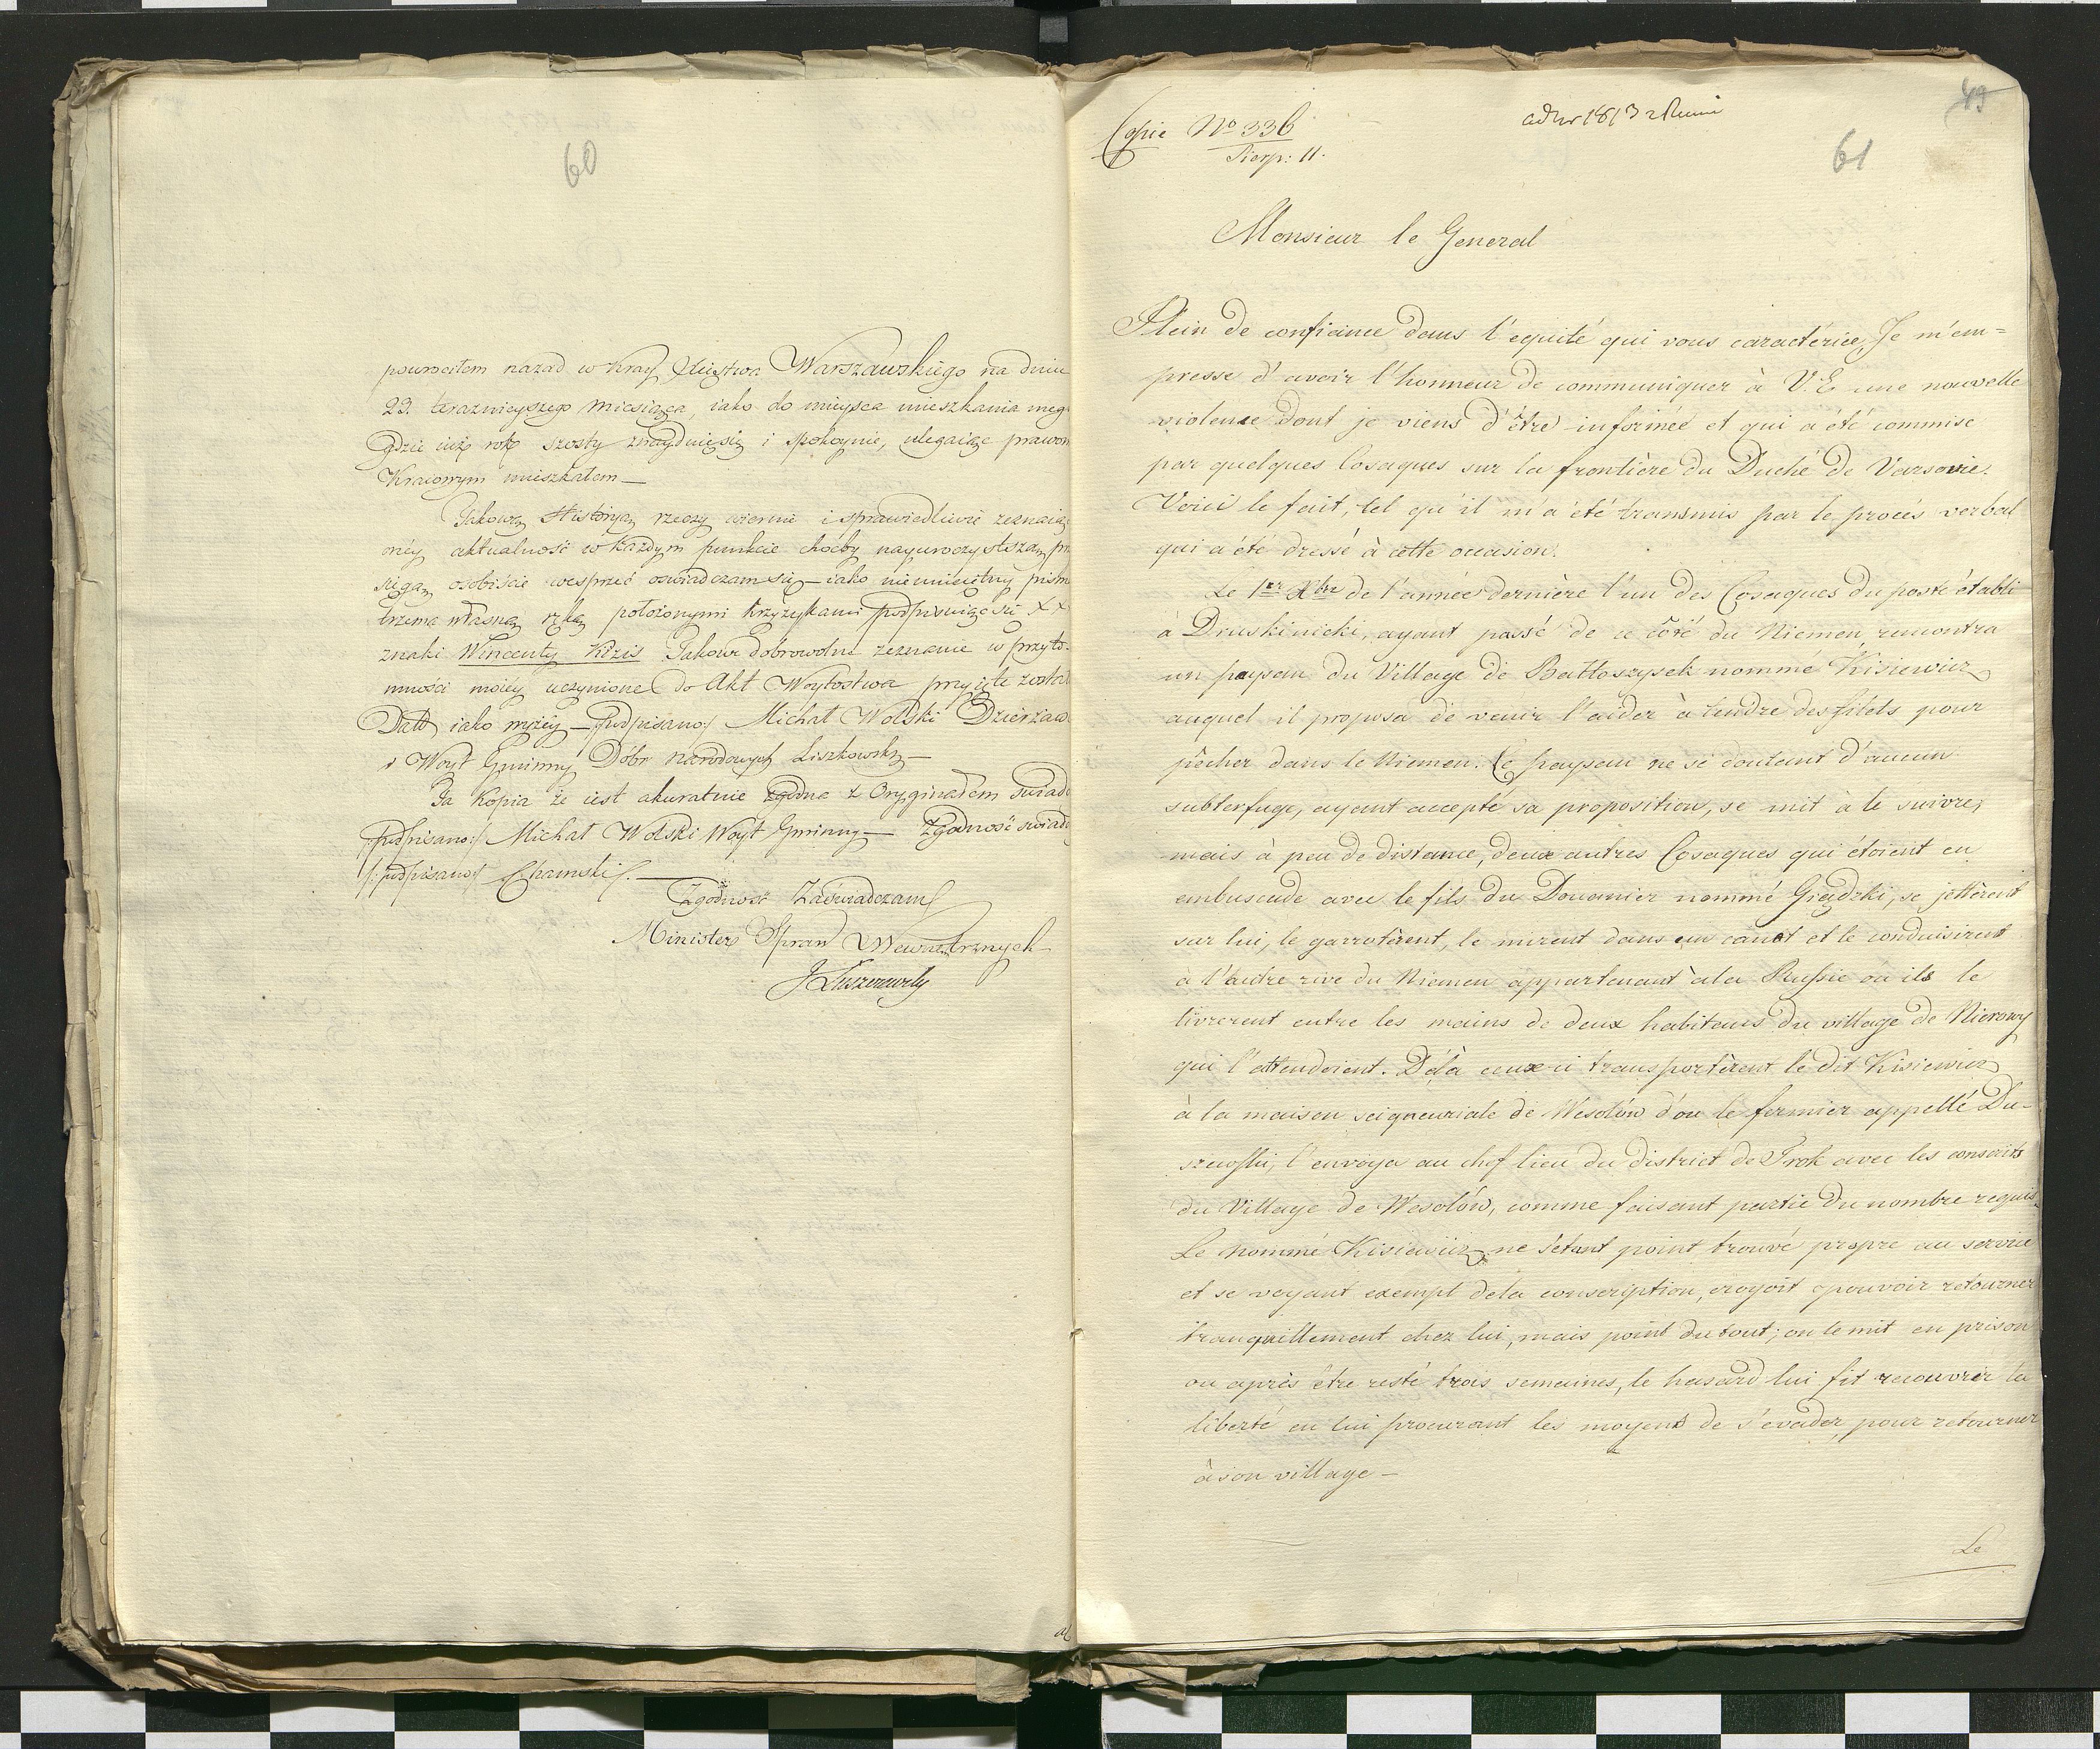 60
powrociłem nazad w Kray Xięstwa Warszawskiego na dniu
29. terazniejszego miesiąca, iako do mieysca mieszkania mego
gdzie iuż rok szosty znayduię się i spokoynie, ulegaiąc prawom
Kraiowym mieszkałem —
Jakową Historyą rzeczy wiernie i sprawiedliwie zeznaię
oney aktualność w każdym punkcie choćby nayuroczystszą
sięgą osobiście wesprzeć oswiadczam się — iako nieumieiętny pism
trzema własną ręką położonymi krzyżykami podpisuiąc się X X
znaki Wincenty Kizis Jakowe dobrowolne zeznanie w przyto-
mności moiey uczynione do Akt Woytostwa przyięte został
Datt iako wyżey — /:podpisano:/ Michał Wolski Dzierżaw
i Woyt Gminny Dóbr Narodowych Liszkowskich —
Ta Kopia że iest akuratnie zgodna z Oryginałem swiad
/:podpisano:/ Michał Wolski Woyt Gminny — Zgodność swiad
/:podpisano:/ Chamski —
Zgodność Zaświadczam
Minister Spraw Wewnętrznych
J Łuszczewski
49
61
Copie No 336
Sierp: 11.
Monsieur le General
Plein de confiance dans l'equité qui vous caractérice, Je m'em=
presse d'avoir l'honneur de communiquer à V.E une nouvelle
violence dont je viens d'être informée et qui a été commise
par quelques Cosaques sur la frontière du Duché de Varsovie.
Voici le fait, tel qu'il m'a été transmis par le procés verbal
qui a été dressé à cette occasion.
Le 1er Xbre de l'année dernière l'un des Cosaques du poste établi
à Druskinicki, ayant passé de ce côté du Niemen, rencontra
un paysan du Village de Battoszyszek nommé Kisiewicz
auquel il proposa de venir l'aider à tendre des filets pour
pêcher dans le Niemen. Le paysan ne se doutant d'aucun
subterfuge, ayant accepté sa proposition, se mit à le suivre,
mais à peu de distance, deux autres Cosaques qui étoient en
embuscade avec le fils du Douanier nommé Giędzki, se jettèrent
sur lui, le garrotèrent, le mirent dans un canot et le conduisirent
à l'autre rive du Niemen appartenant à la Russie où ils le
livrerent entre les mains de deux habitans du village de Nierowy
qui l'attendoient. Delà ceux-ci transportèrent le dit Kisiewicz
à la maison seigneuriale de Wesołów d'ou le fermier appellé Du-
szewski, l'envoya au chef lieu du district de Trok avec les conscrits
du Village de Wesołów, comme faisant partie du nombre requis.
Le nommé Kisiewicz ne s'étant point trouvé propre au service
et se voyant exempt dela conscription, croyoit pouvoir retourner
tranquillement chez lui, mais point du tout; on le mit en prison
ou après être resté trois semaines, le hasard lui fit recouvrer la
liberté en lui procurant les moyens de s'evader, pour retourner
à son village —
Le